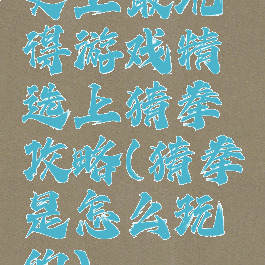 史上最坑
得游戏精
选上猜拳
攻略(猜拳
是怎么玩
的)